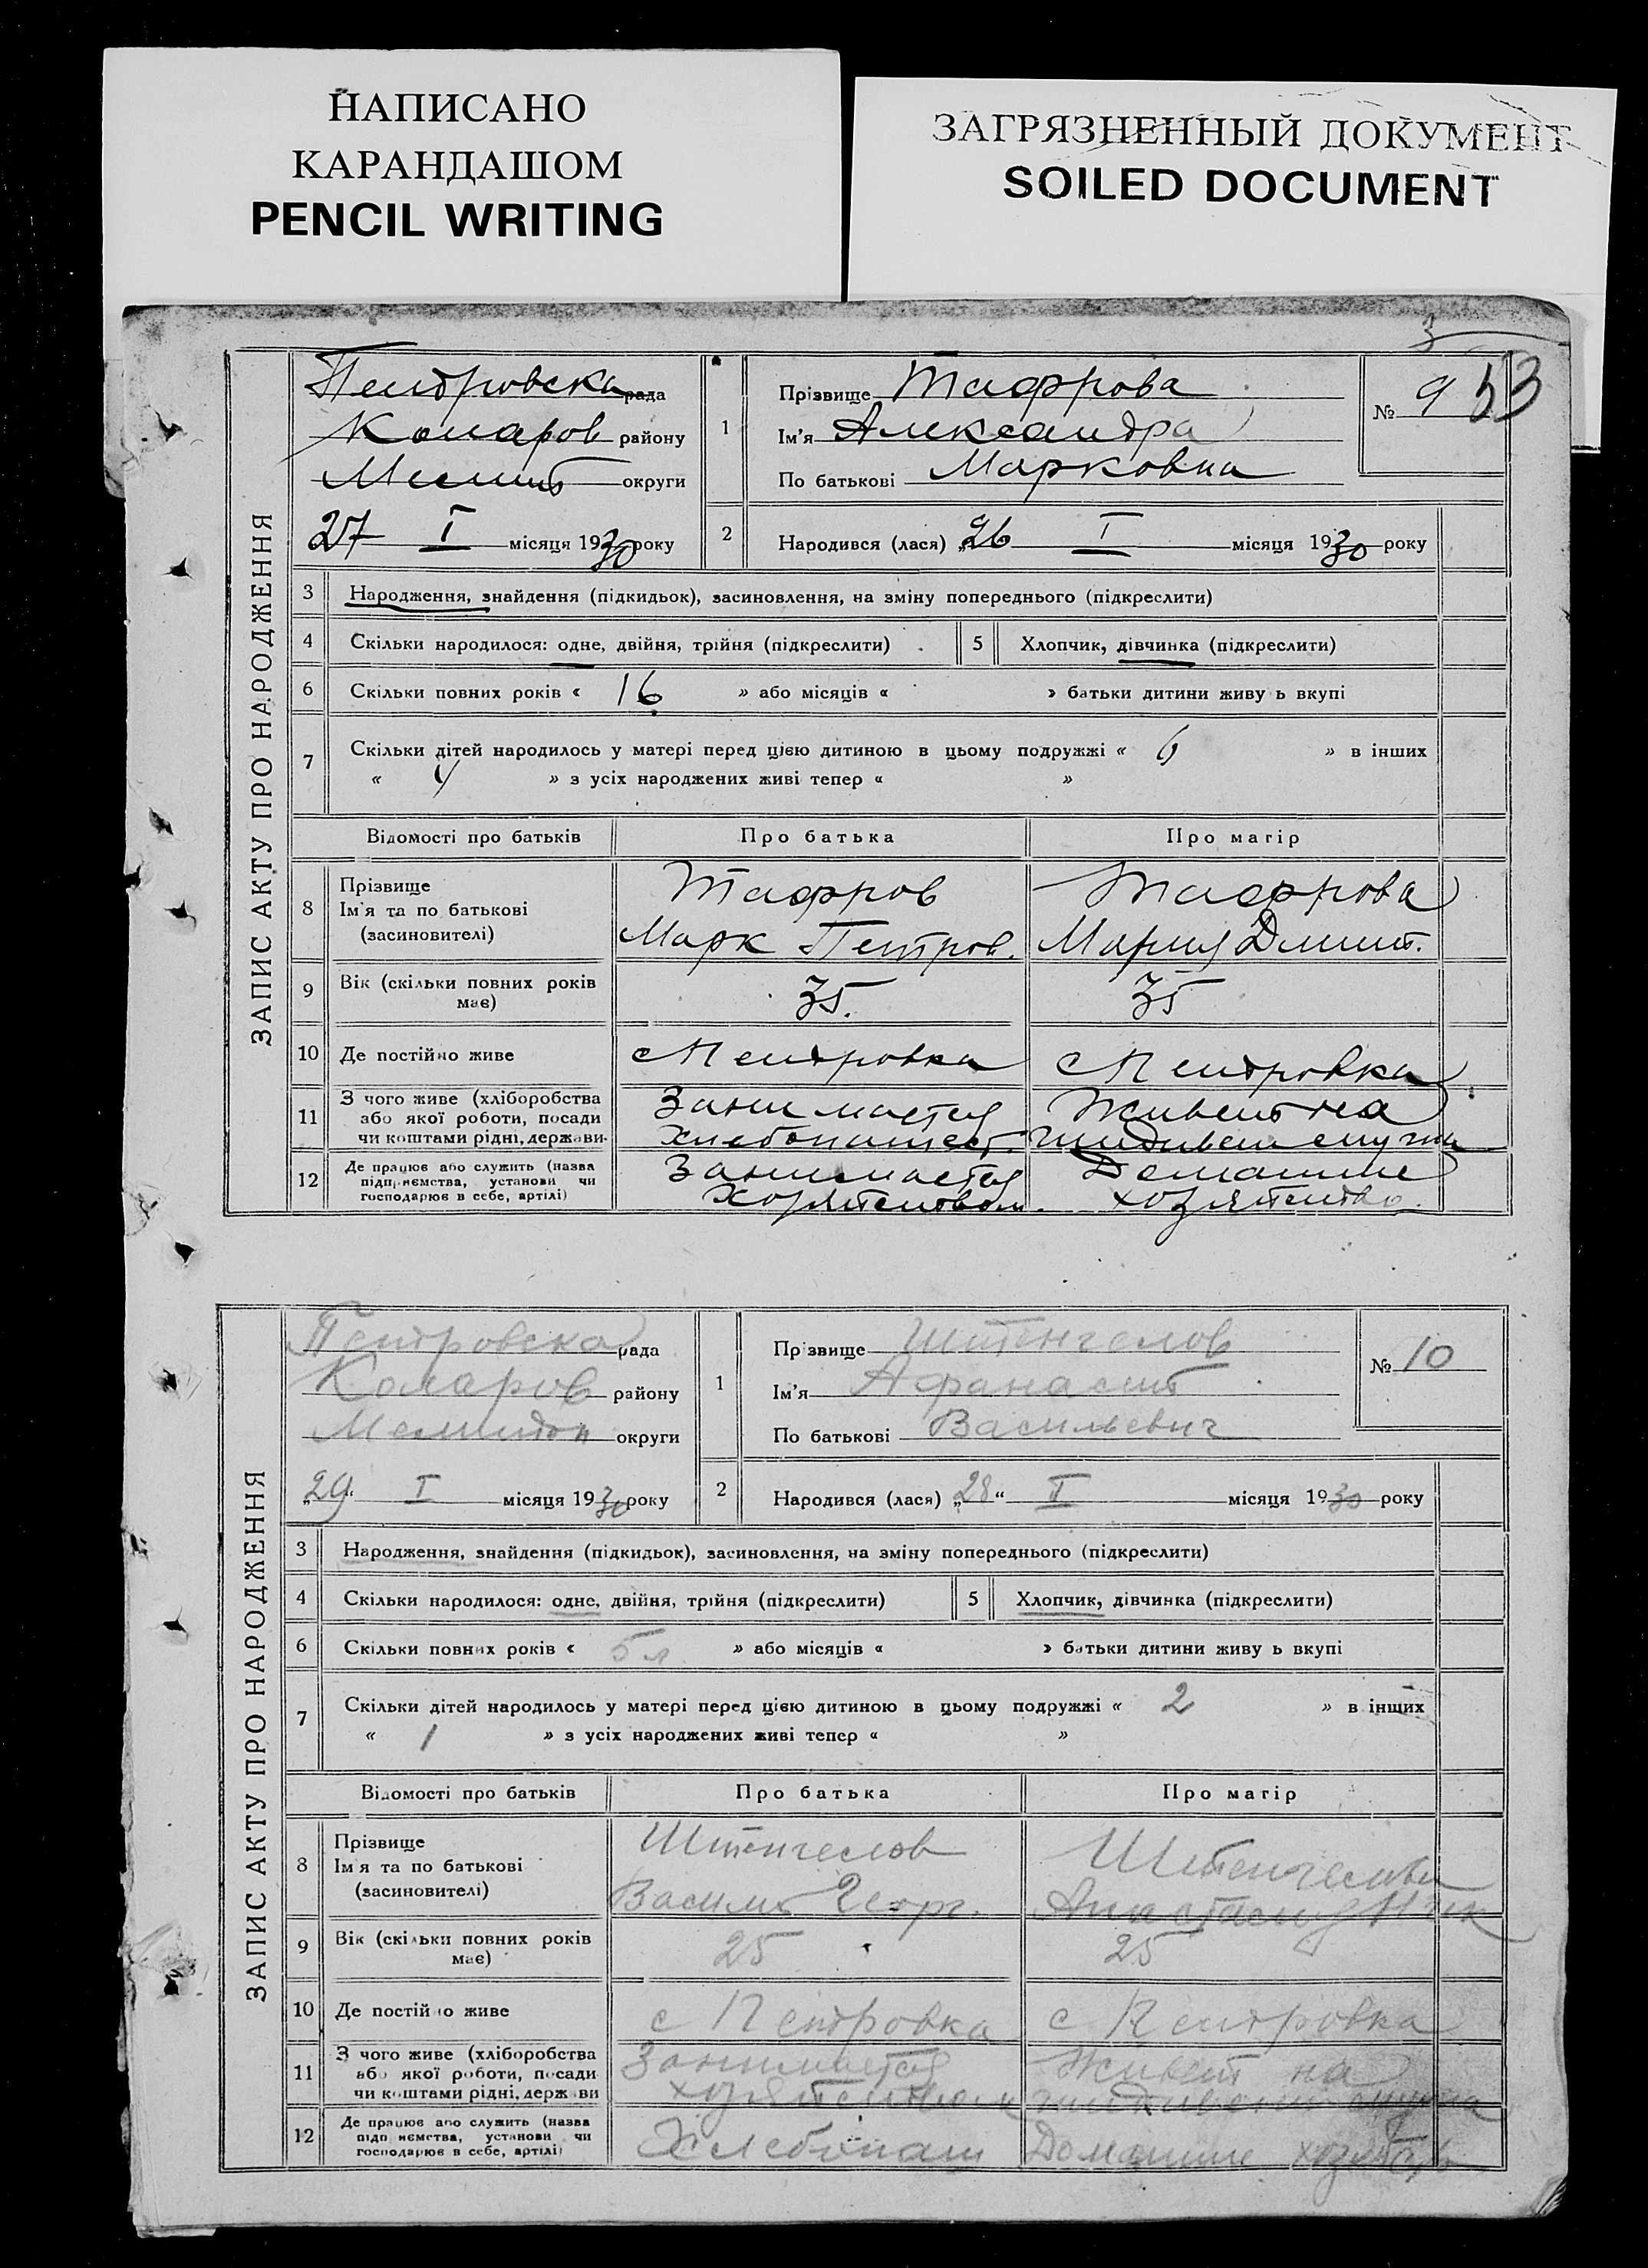 НАПИСАНО
КАРАНДАШОМ
PENCIL WRITING
ЗАГРЯЗНЕННЫЙ ДОКУМЕНТ
SOILED DOCUMENT
3
53
ЗАПИС АКТУ ПРО НАРОДЖЕННЯ
Петровска рада
Коларов району
Мелит округи
27 I місяця 1930 року
1 Прізвище Тафрова
Ім'я Александра
По батькові Марковна
№ 9
2 Народився (лася) „26 I місяця 1930 року
3 Народження, знайдення (підкидьок), засиновлення, на зміну попереднього (підкреслити)
4 Скільки народилося: одне, двійня, трійня (підкреслити) 5 Хлопчик, дівчинка (підкреслити)
6 Скільки повних років « 16 » або місяців « » батьки дитини живу ь вкупі
7 Скільки дітей народилось у матері перед цією дитиною в цьому подружжі « 6 » в інших
« 4 » з усіх народжених живі тепер « »
Відомості про батьків Про батька Про матір
8 Прізвище
Ім'я та по батькові
(засиновителі)
Тафров
Марк Петров.
Тафрова
Мария Дмит.
9 Вік (скільки повних років
має)
35.
35
10 Де постійно живе с Петровка с Петровка
11 З чого живе (хліборобства
або якої роботи, посади
чи коштами рідні, держави.
Занимается
хлебопашест.
Живет на
иждивении мужа
12 Де працює або служить (назва
підприємства, установи чи
господарює в себе, артілі)
Занимается
Хозяйством.
Домашне
хозяйство.
ЗАПИС АКТУ ПРО НАРОДЖЕННЯ
Петровска рада
Коларов району
Мелитоп округи
„29“ I місяця 1930 року
1 Прізвище Штенгелов
Ім'я Афанасий
По батькові Васильевич
№ 10
2 Народився (лася) „28“ I місяця 1930 року
3 Народження, знайдення (підкидьок), засиновлення, на зміну попереднього (підкреслити)
4 Скільки народилося: одне, двійня, трійня (підкреслити) 5 Хлопчик, дівчинка (підкреслити)
6 Скільки повних років « 5 л » або місяців « » батьки дитини живу ь вкупі
7 Скільки дітей народилось у матері перед цією дитиною в цьому подружжі « 2 » в інших
« 1 » з усіх народжених живі тепер « »
Відомості про батьків Про батька Про матір
8 Прізвище
Ім'я та по батькові
(засиновителі)
Штенгелов
Василий Георг.
Штенгелова
Анастасия Ник
9 Вік (скільки повних років
має)
25
25
10 Де постійно живе с Петровка с Петровка
11 З чого живе (хліборобства
або якої роботи, посади
чи коштами рідні, держави
Занимается
хозяйством
Живет на
иждивении мужа
12 Де працює або служить (назва
підприємства, установи чи
господарює в себе, артілі)
Хлебопаш
Домашне хозяйство